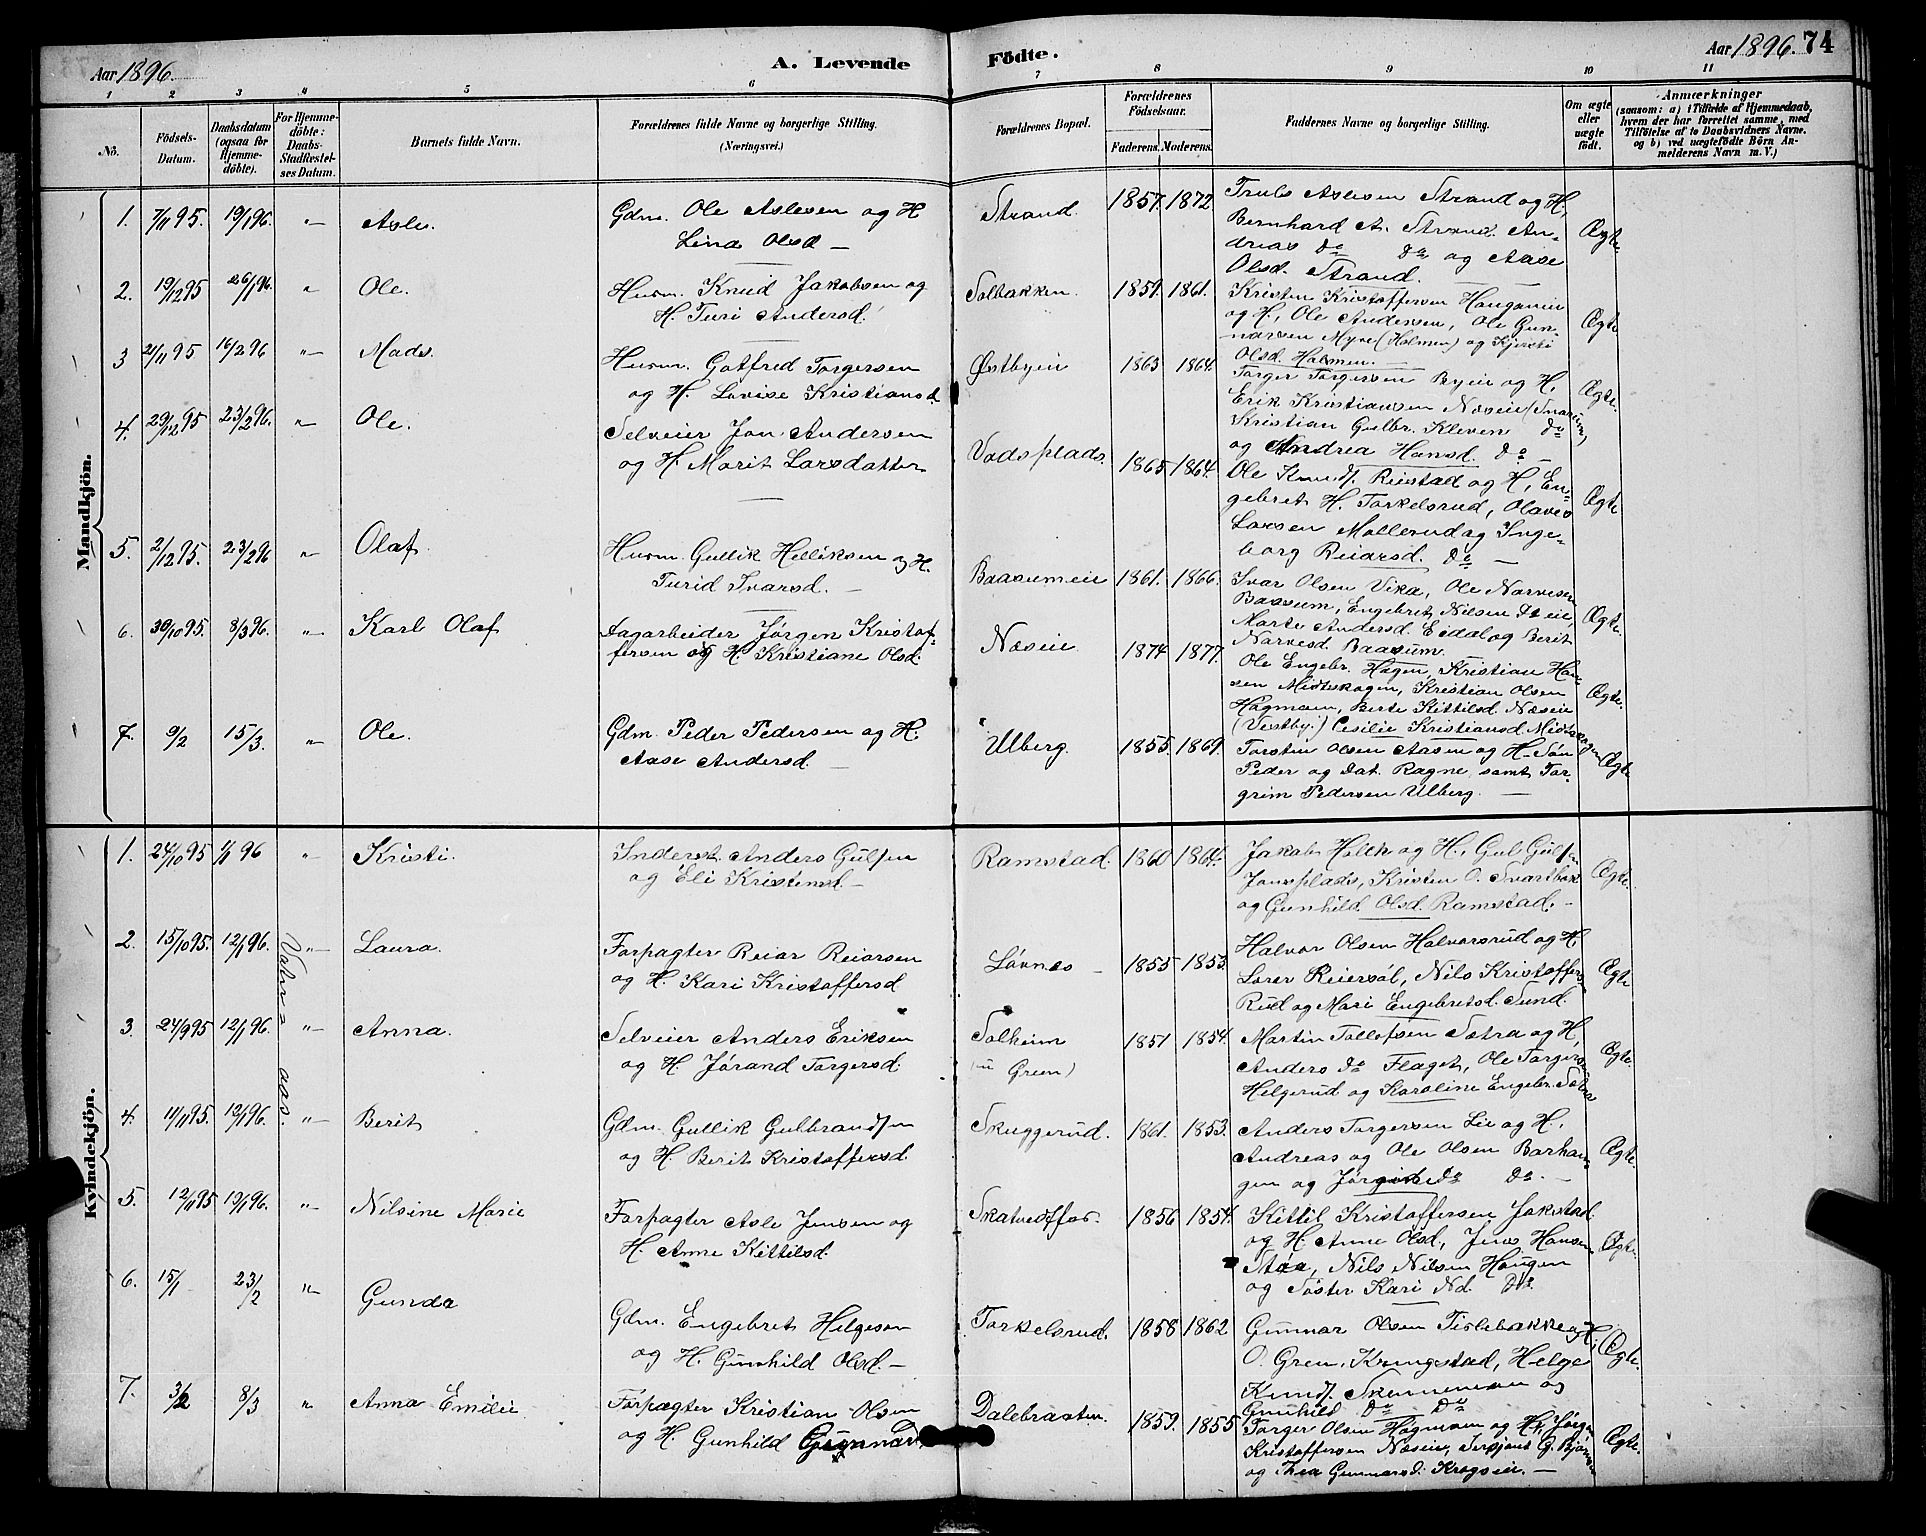 Aar 1896.
A. Levende
Födte.
Aar 1896. 74
1 2 3 4 5 6 7 8 9 10 11
No.
Födsels-Datum.
Daabsdatum (ogsaa for Hjemmedöbte).
For Hjemmedöbte: Daabs-Stadfæstelses Datum.
Barnets fulde Navn.
Forældrenes fulde Navne og borgerlige Stilling. (Næringsvei.)
Forældrenes Bopæl.
Forældrenes Födselsaar.
Faderens. Moderens.
Faddernes Navne og borgerlige Stilling.
Om ægte eller uægte födt.
Anmærkninger
(saasom: a) i Tilfælde af Hjemmedaab, hvem der har forrettet samme, med Tilföielse af to Daabsvidners Navne. og b) ved uægtefödte Börn Anmelderens Navn m. V.)
Mandkjön.
1. 7/11 95. 19/1 96. " Asle. Gdm. Ole Aslesen og H Lina Olsd — Strand. 1857. 1872
Truls Aslesen Strand og H,
Bernhard A. Strand. An-
dreas do do og Aase
Olsd. Strand.
Ægte
2. 19/12 95 26/1 96. " Ole. Husm. Knud Jakobsen og H. Turi Andersd. Solbakken. 1859. 1861.
Kristen Kristoffersen Haugmeie
og H, Ole Andersen, Ole Gun-
narsen Myre (Holmen) og Kjersti
Olsd. Holmen.
Ægte
3 21/11 95 16/2 96 " Mads. Husm. Gotfred Torgersen og H. Lovise Kristiansd. Østbyeie 1863 1864.
Torger Torgersen Byeie og H.
Erik Kristiansen Næseie (Snarum,
Kristian Gulbr. Kleven do
og Andrea Hansd. do —
Ægte.
4. 29/12 95 23/2 96. " Ole. Selveier Jon Andersen og H. Marit Larsdatter Vadsplads. 1865 1864.
Ole Knuds. Reistad og H, En-
gebret H. Torkelsrud, Olaves
Larsen Mollerud og Inge-
borg Reiarsd. do —
Ægte
5. 2/12 95. 23/2 96 " Olaf. Husm. Gullik Helliksen og H. Turid Ivarsd. — Baasumeie 1861. 1866.
Ivar Olsen Vika, Ole Narvesen
Baasum, Engebret Nilsen do eie,
Marte Andersd. Eidal og Berit
Narvesd. Baasum.
Ægte.
6. 30/10 95. 8/3 96. " Karl Olaf Dagarbeider Jørgen Kristoffersen og H. Kristiane Olsd. Næseie 1874 1877.
Ole Engebr. Hagen, Kristian Han-
sen Midtskogen, Kristian Olsen
Hagmoen, Berte Kittilsd. Næseie
(Vestby.) Cesilie Kristiansd. Midtskogen
Ægte.
7. 9/2 15/3. " Ole. Gdm. Peder Pedersen og H. Aase Andersd. — Ulberg. 1855. 1869.
Torsten Olsen Aasen og H. Søn
Peder og Dat. Ragne, samt Tor-
grim Pedersen Ulberg. —
Ægte
Kvindekjön.
Vatnaas.
1. 24/10 95 1/1 96 " Kristi. Inderst Anders Gulsen og Eli Kristensd. — Ramstad. 1860 1864.
Jakob Holth og H., Gul Gulsen
Jonsplads, Kristen O. Svartbak
og Gunhild Olsd. Ramstad. —
Ægte.
2. 15/10 95. 12/1 96. " Laura. Forpagter Reiar Reiarsen og H. Kari Kristoffersd. Løvnes — 1855 1853.
Halvor Olsen Halvorsrud og H.
Lars Reiersøl, Nils Kristoffersen
Rud og Mari Engebretsd. Sund.
Ægte
3. 24/9 95 12/1 96. " Anna. Selveier Anders Eriksen og H. Jørand Torgersd. Solheim (u Green) 1851 1854.
Martin Tollefsen Sætra og H,
Anders do Flaget, Ole Torgersen
Helgerud og Karoline Engebr. Sætra
Ægte.
4. 11/11 95. 12/1 96. " Berit Gdm. Gullik Gulbrandsen og H. Berit Kristoffersd. Skuggerud. 1861. 1853.
Anders Torgersen Lie og H,
Andreas og Ole Olsen Barhau-
gen og Jørgine do do. —
Ægte.
5. 12/11 95 19/1 96. " Nilsine Marie Forpagter Asle Jensen og H. Anne Kittilsd. Skatvedtfos. 1856 1854.
Kittil Kristoffersen Jokstad.
og H. Anne Olsd, Jens Hansen
Støa, Nils Nilsen Haugen
og Søster Kari Nd. do.
Ægte.
6. 15/1 23/2 " Gunda Gdm. Engebret Helgesen og H. Gunhild Olsd. — Torkelsrud. 1858 1862
Gunnar Olsen Tislebakke og H,
O. Gren, Kringstad, Helge
Knuds. Skinnemoen og
Gunhild do do
Ægte.
7. 3/2 8/3 " Anna Emilie Forpagter Kristian Olsen og H. Gunhild Gunnarsd. Dalebraaten. 1859. 1855
Torger Olsen Hagmoen og H, Jørgen
Kristoffersen Næseie, Torjus G. Bjøre
og Thea Gunnarsd. Krogseie. —
Ægte.